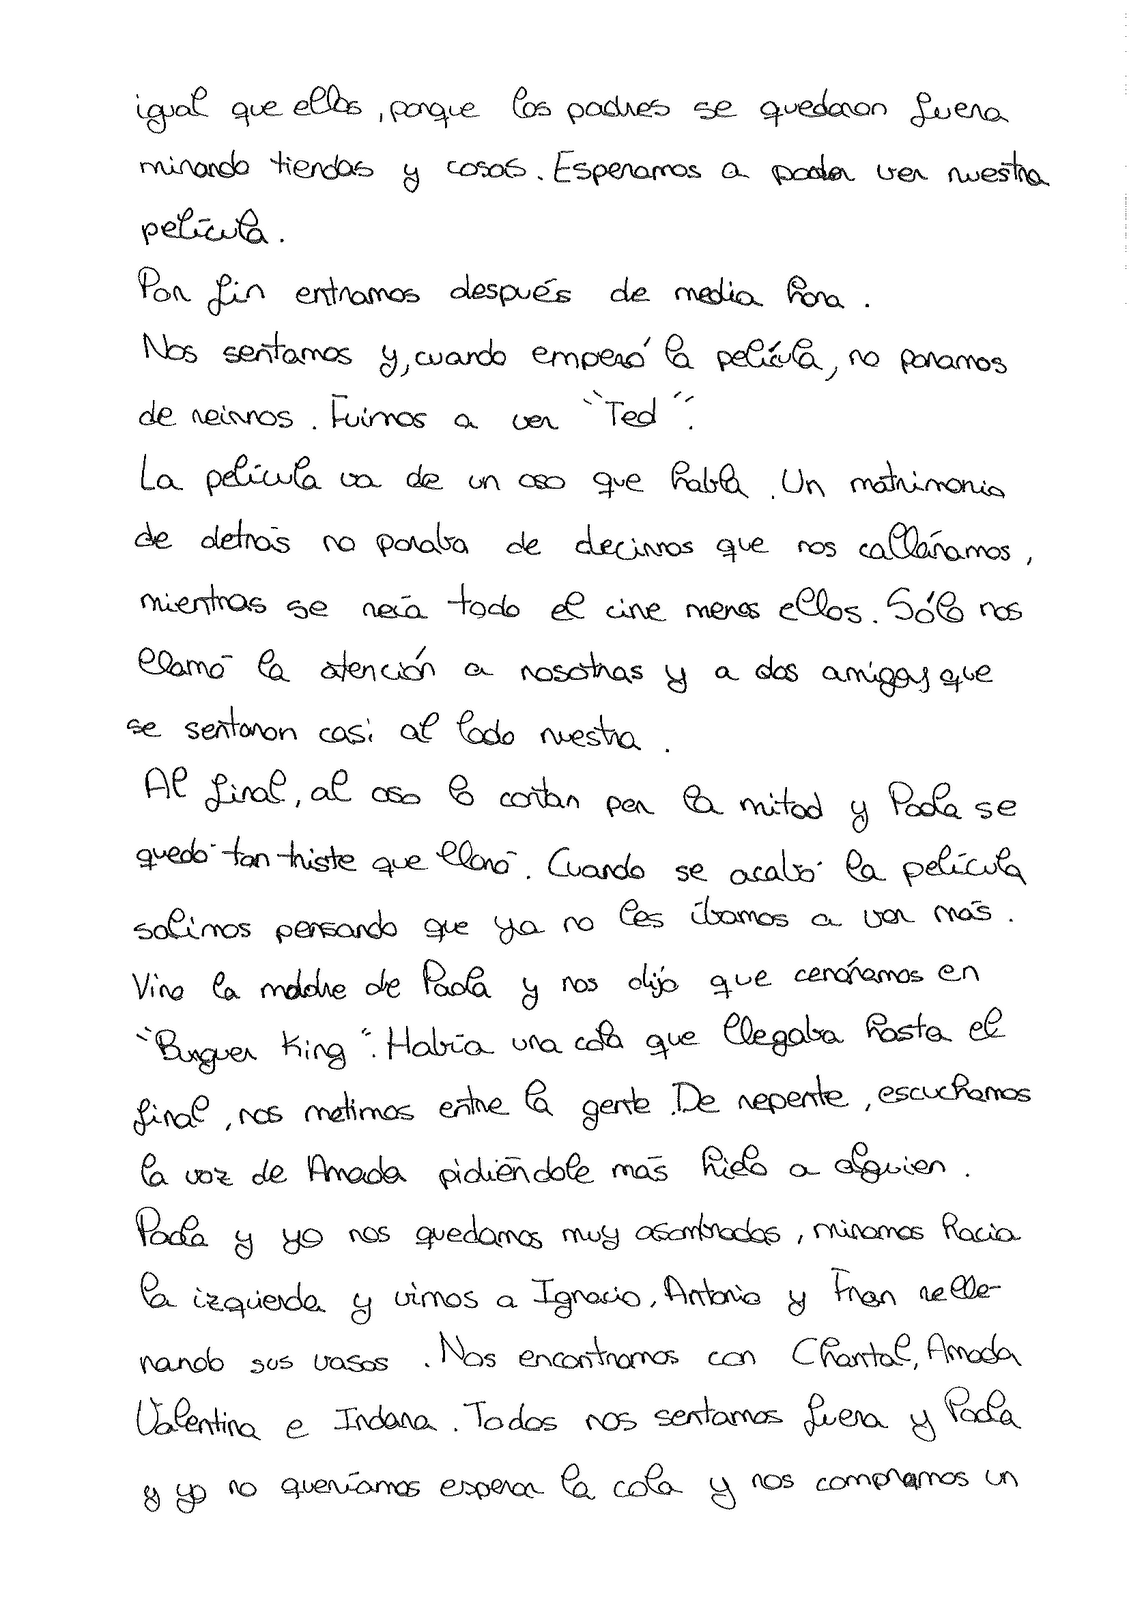 igual que ellos, porque los padres se quedaron fuera
mirando tiendas y cosas. Esperamos a poder ver nuestra
película.
Por fin entramos después de media hora.
Nos sentamos y, cuando empezó la película, no paramos
de reirnos. Fuimos a ver "Ted".
La película va de un oso que habla. Un matrimonio
de detrás no paraba de decirnos que nos calláramos,
mientras se reía todo el cine menos ellos. Sólo nos
llamó la atención a nosotras y a dos amigas que
se sentaron casi al lado nuestra.
Al final, al oso lo cortan por la mitad y Paola se
quedó tan triste que lloró. Cuando se acabó la película
salimos pensando que ya no les íbamos a ver más.
Vino la madre de Paola y nos dijo que cenáramos en
"Burguer King". Había una cola que llegaba hasta el
final, nos metimos entre la gente. De repente, escuchamos
la voz de Amada pidiéndole más hielo a alguien.
Paola y yo nos quedamos muy asombradas, miramos hacia
la izquierda y vimos a Ignacio, Antonio y Fran relle-
nando sus vasos. Nos encontramos con Chantal, Amada
Valentina e Indara. Todos nos sentamos fuera y Paola
y yo no queríamos esperar la cola y nos compramos un